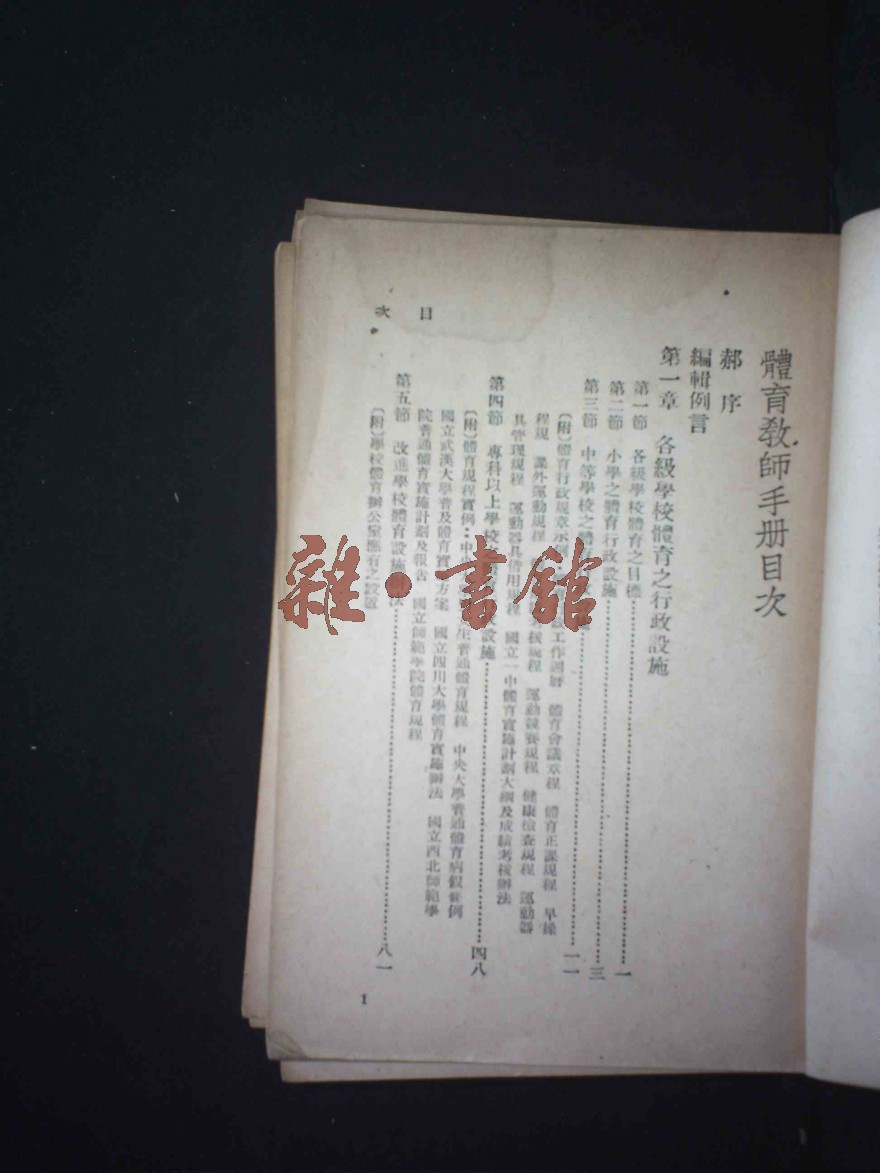 體育敎師手册目次
郝序
編輯例言
第一章 各級學校體育之行政設施
第一節 各級學校體育之目標……一
第二節 小學之體育行政設施……三
第三節 中等學校之體育……一一
〔附〕體育行政規章示例 工作週曆 體育會議章程 體育正課規程 早操
程規 課外運動規程 核規程 運動競賽規程 健康檢查規程 運動器
具管理規程 運動器具借用規程 國立一中體育實施計劃大綱及成績考核辦法
第四節 專科以上學校 政設施……四八
〔附〕體育規程實例：中央 生普通體育規程 中央大學普通體育病假條例
國立武漢大學普及體育實施方案 國立四川大學體育實施辦法 國立西北師範學
院普通體育實施計劃及報告 國立師範學院體育規程
第五節 改進學校體育設施辦法……八一
〔附〕學校體育辦公室應有之設置
目次
1
雜·書館